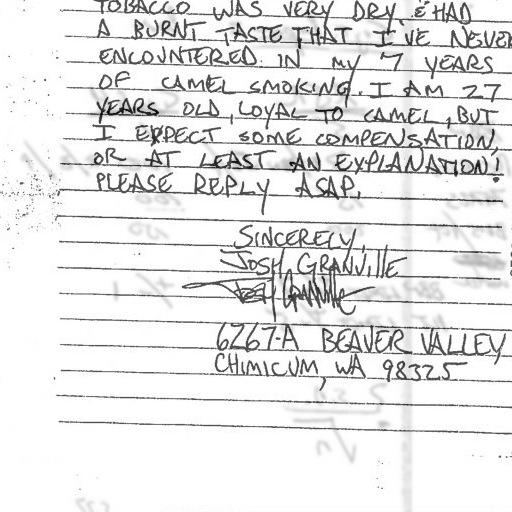 TOBACCO WAS VERY DRY, & HAD
A BURNT TASTE THAT I'VE NEVER
ENCOUNTERED IN MY 7 YEARS
OF CAMEL SMOKING. I AM 27
YEARS OLD, LOYAL TO CAMEL, BUT
I EXPECT SOME COMPENSATION,
OR AT LEAST AN EXPLANATION!
PLEASE REPLY ASAP.
SINCERELY,
JOSH GRANVILLE
Josh Granville
6267-A BEAVER VALLEY
CHIMICUM, WA 98325